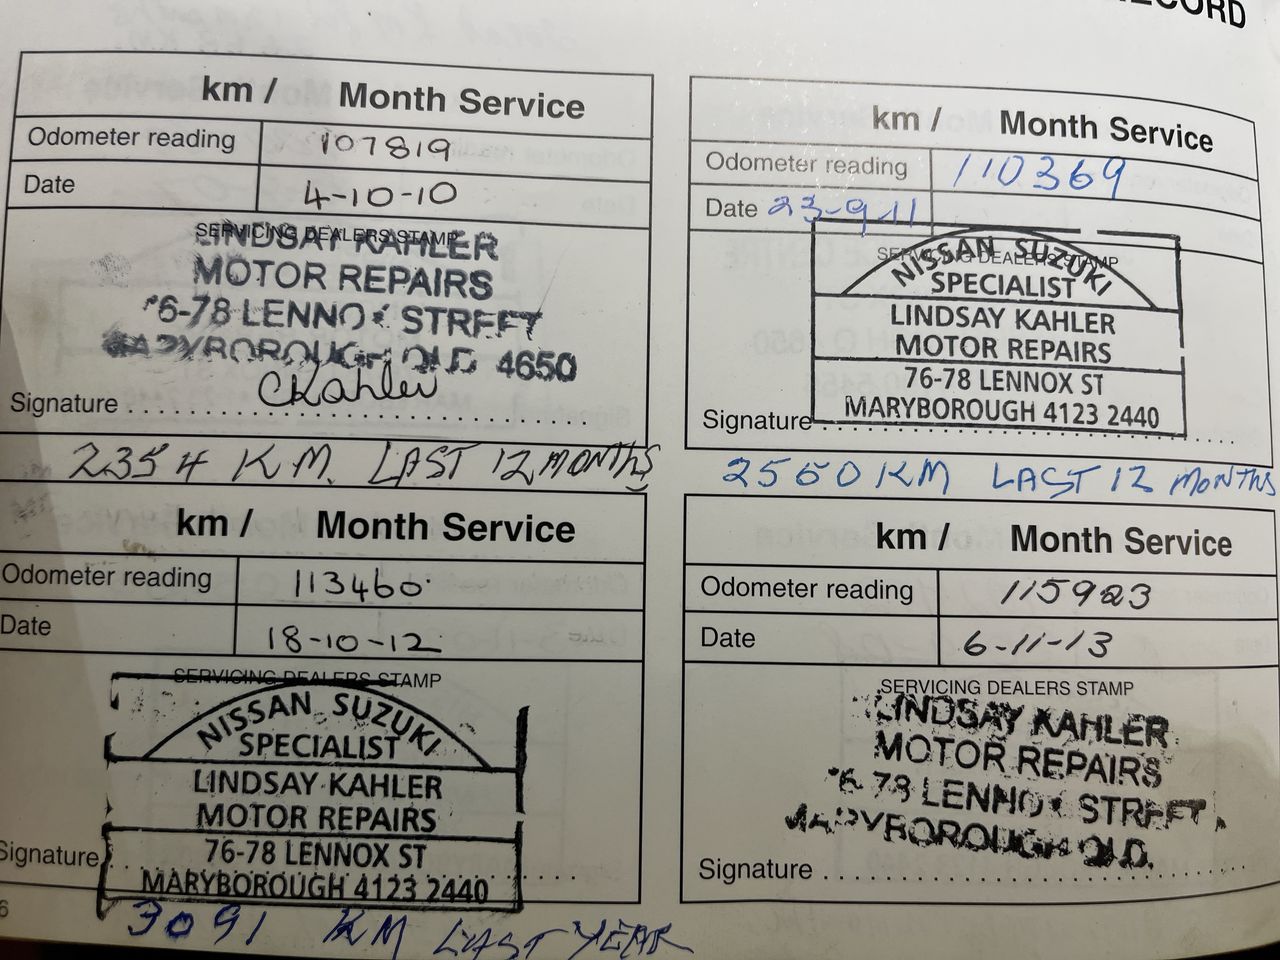 RECORD
km / Month Service
Odometer reading 107819
Date 4-10-10
SERVICING DEALERS STAMP
LINDSAY KAHLER
MOTOR REPAIRS
76-78 LENNOX STREET
MARYBOROUGH QLD 4650
Signature CKahler
2354 KM. LAST 12 MONTHS
km / Month Service
Odometer reading 110369
Date 23-9-11
SERVICING DEALERS STAMP
NISSAN SUZUKI
SPECIALIST
LINDSAY KAHLER
MOTOR REPAIRS
76-78 LENNOX ST
MARYBOROUGH 4123 2440
Signature
2550 KM LAST 12 MONTHS
km / Month Service
Odometer reading 113460
Date 18-10-12
SERVICING DEALERS STAMP
NISSAN SUZUKI
SPECIALIST
LINDSAY KAHLER
MOTOR REPAIRS
76-78 LENNOX ST
Signature
MARYBOROUGH 4123 2440
3091 KM LAST YEAR
km / Month Service
Odometer reading 115923
Date 6-11-13
SERVICING DEALERS STAMP
LINDSAY KAHLER
MOTOR REPAIRS
76-78 LENNOX STREET
MARYBOROUGH QLD.
Signature
6